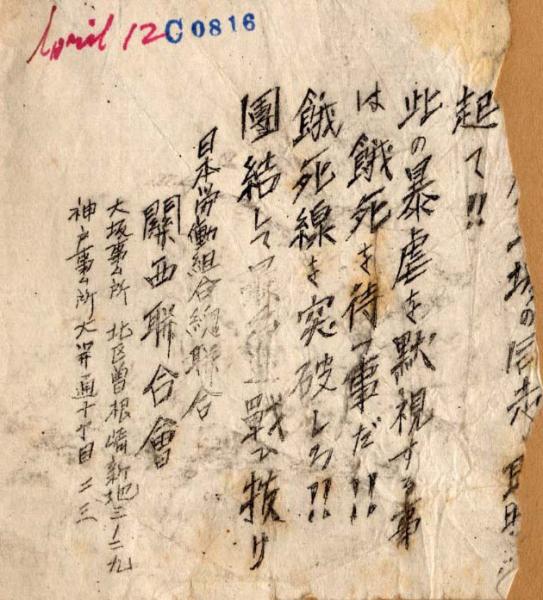 April 12 C0816
場の同志
起て!!
此の暴虐を黙視する事
は餓死を待つ事だ!!
餓死線を突破しろ!!
團結して 戰ひ抜け
日本労働組合總聯合
關西聯合會
大坂事ム所 北区曽根崎新地三ノ二九
神戸事ム所 大井通十丁目二三